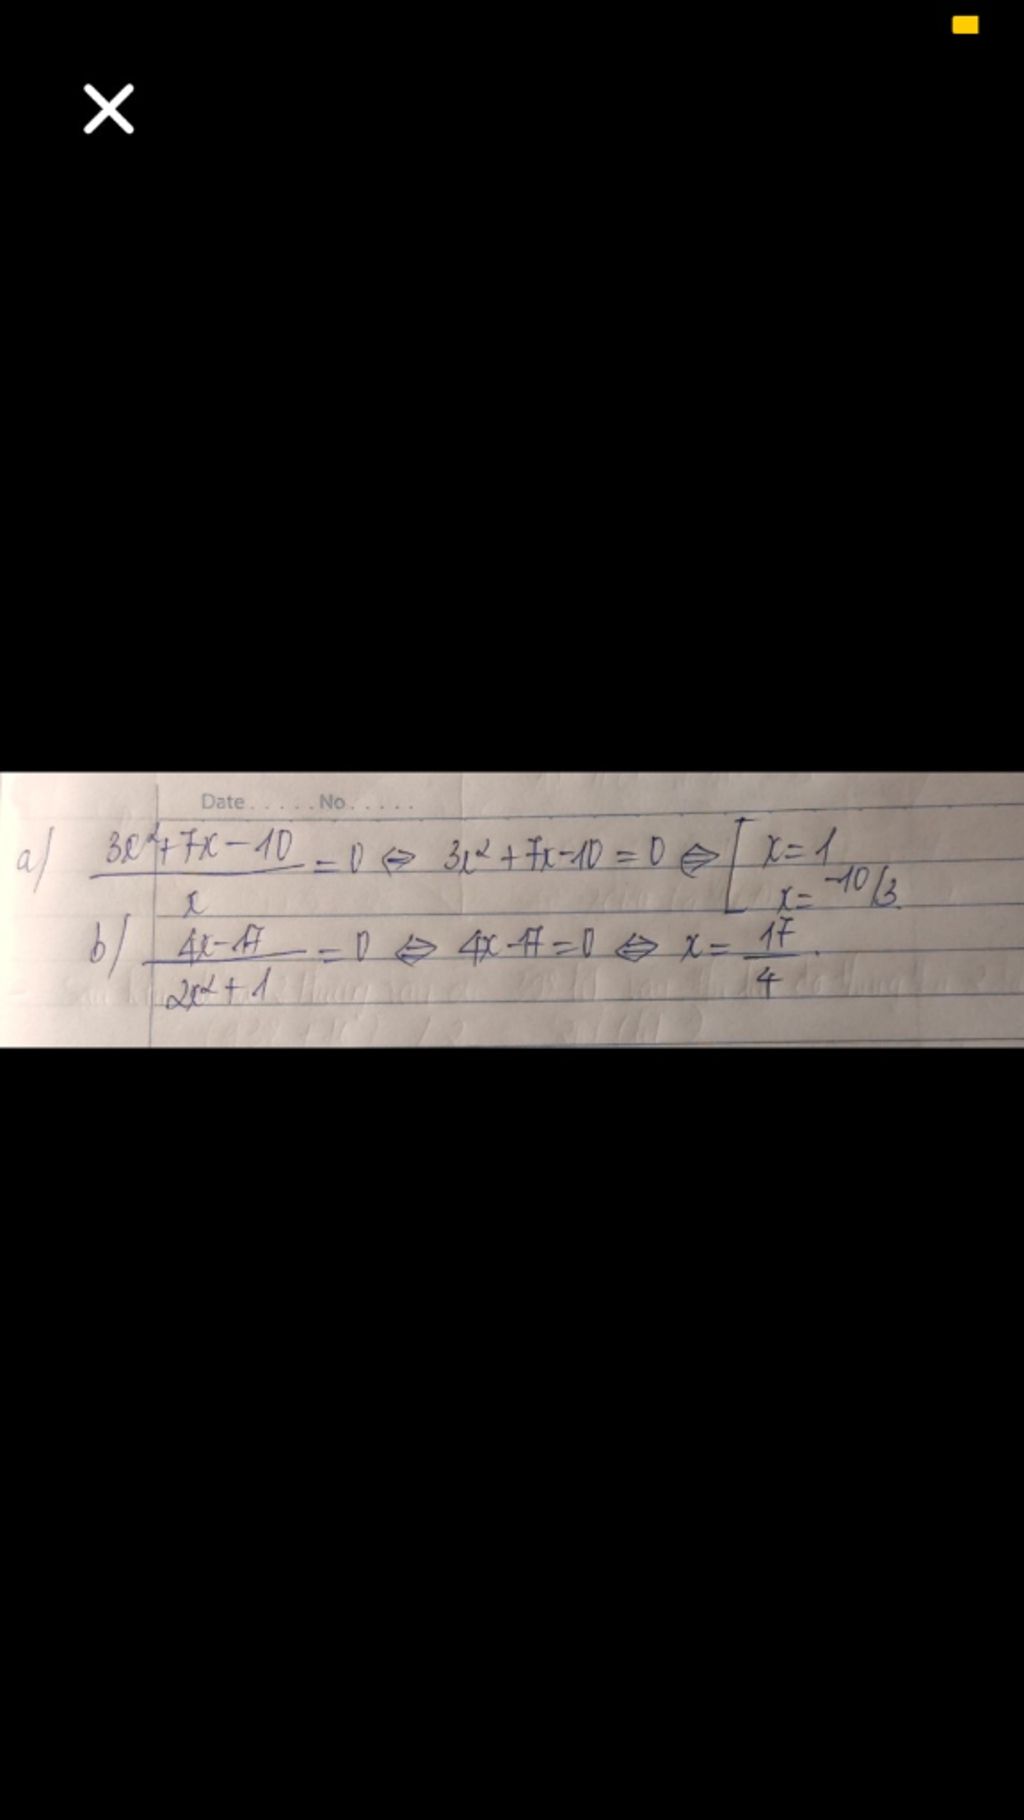 Date.....No.....
a/ 3x²+7x-10/x = 0 ⇔ 3x²+7x-10=0 ⇔ [x=1
x=-10/3
b/ 4x-17/2x²+1 = 0 ⇔ 4x-17=0 ⇔ x=17/4.